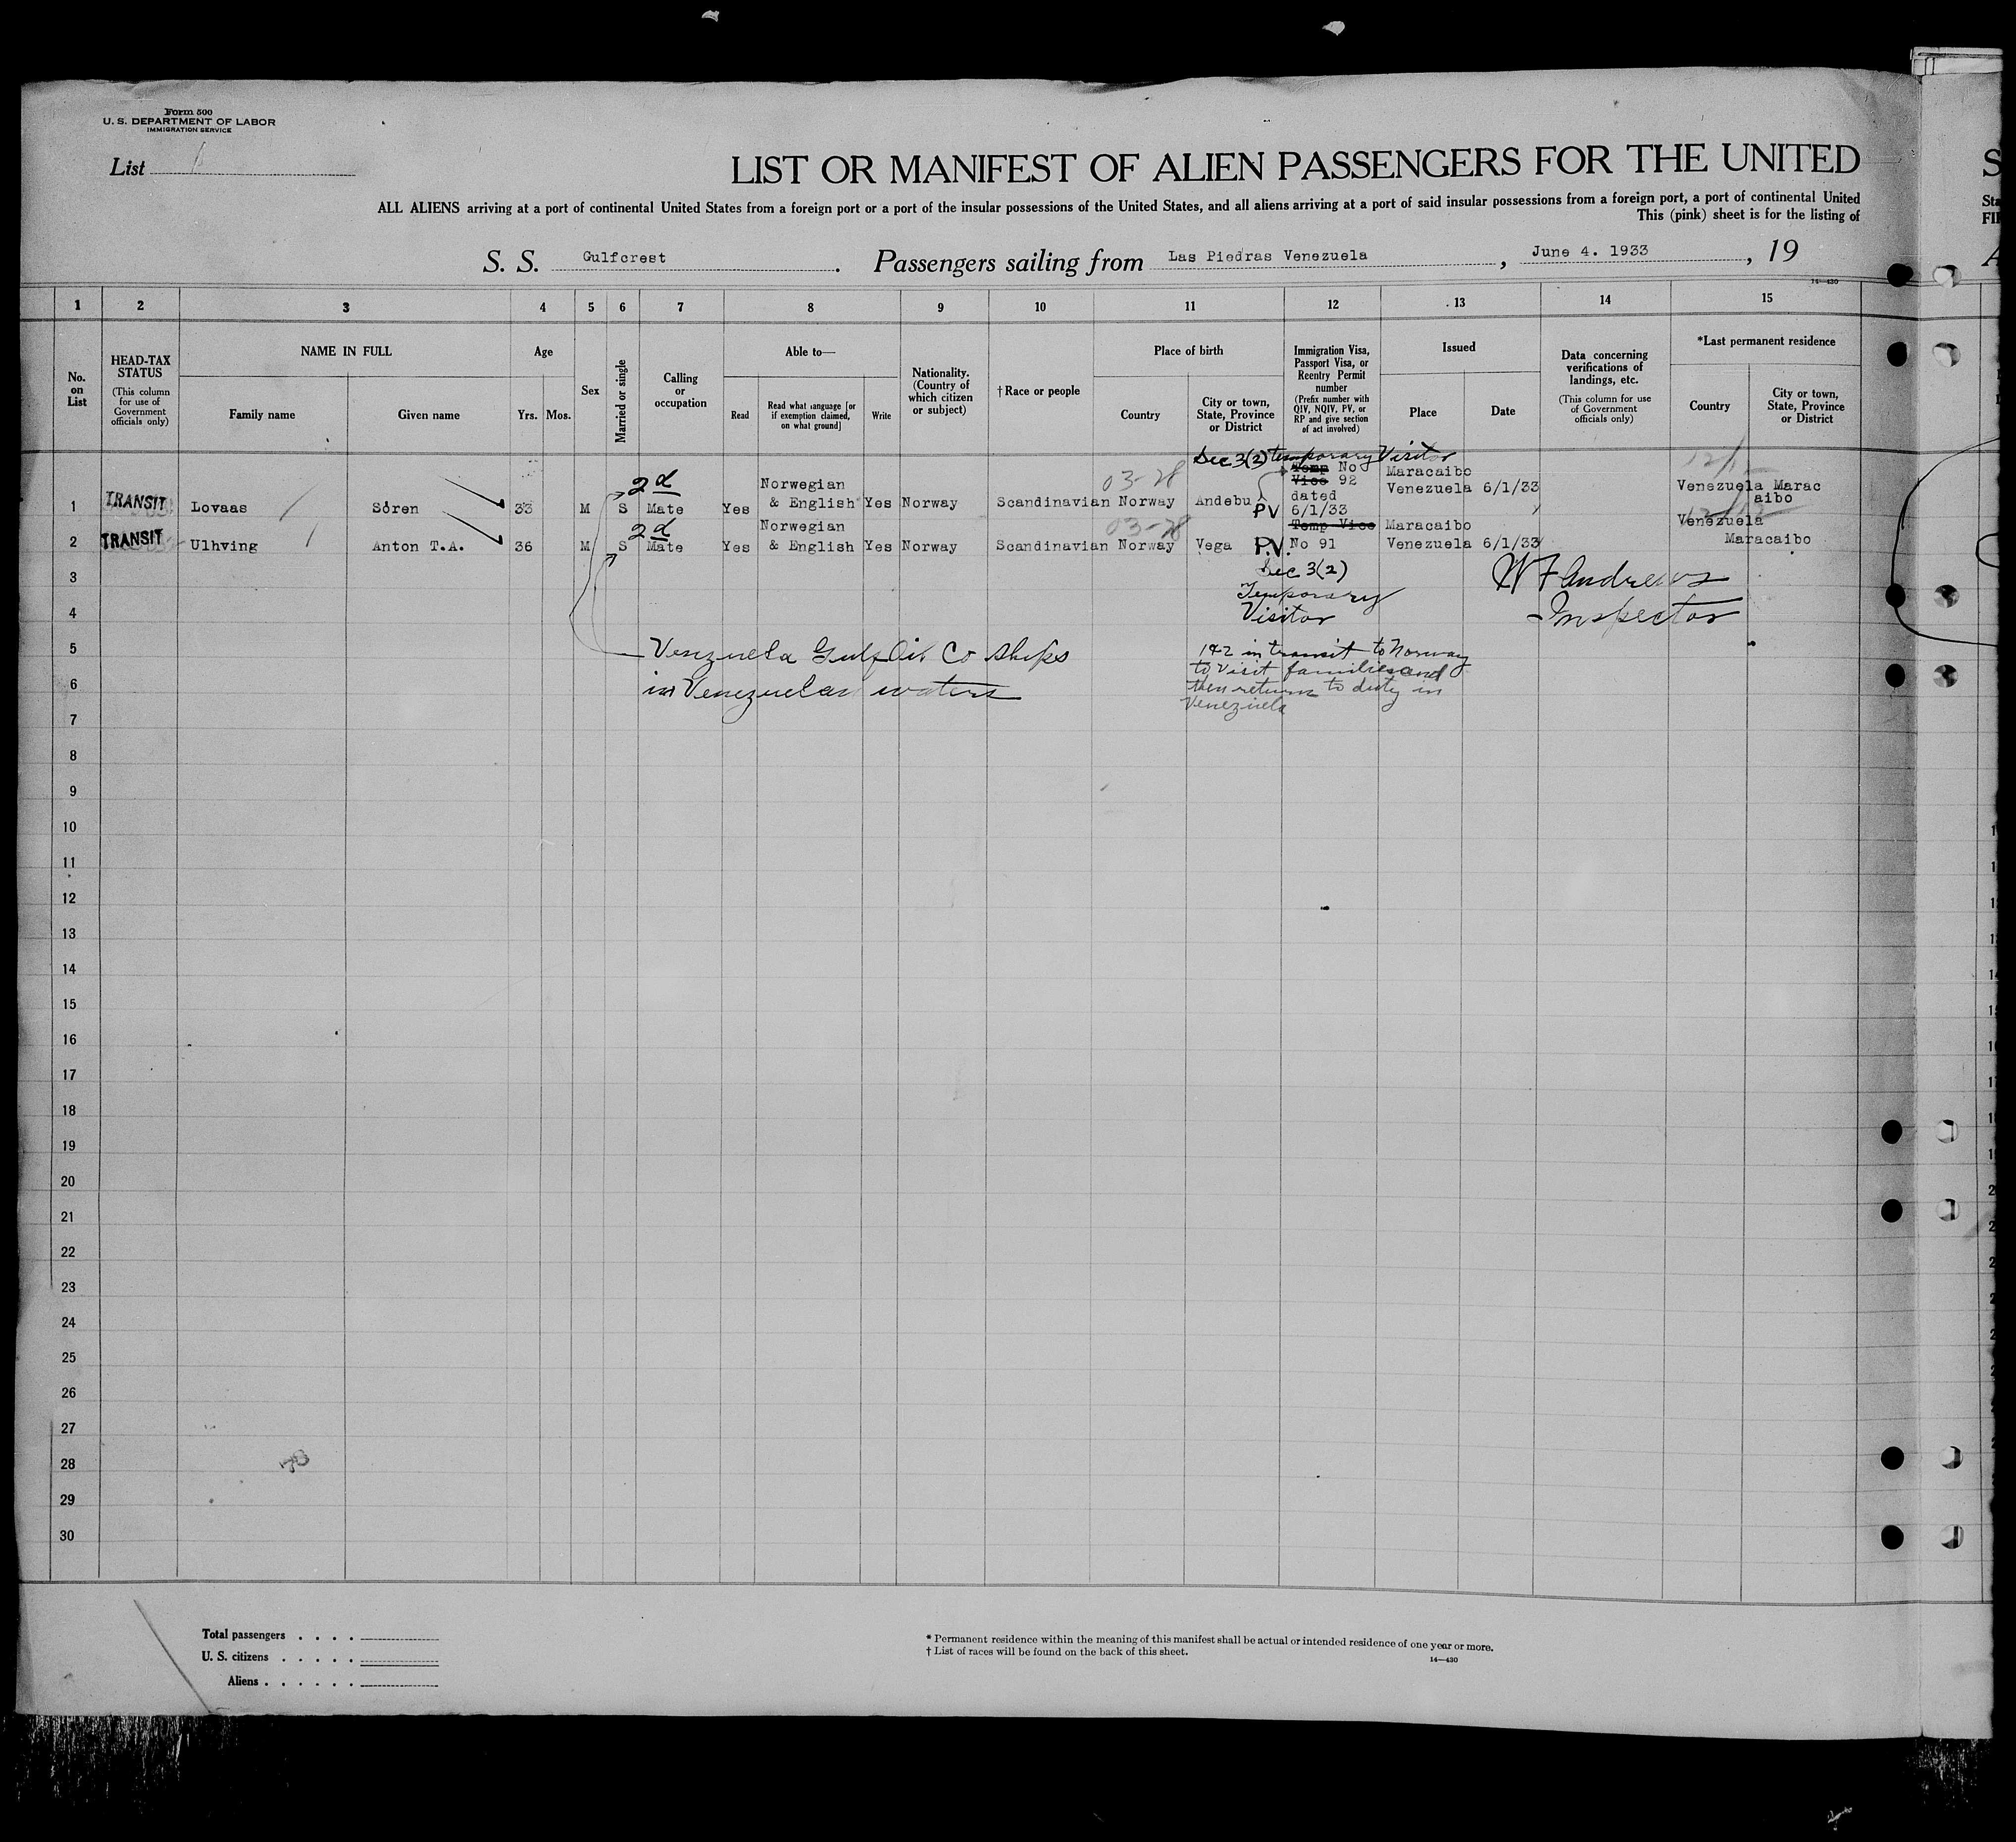 Form 500
U. S. DEPARTMENT OF LABOR
IMMIGRATION SERVICE
List
LIST OR MANIFEST OF ALIEN PASSENGERS FOR THE UNITED
ALL ALIENS arriving at a port of continental United States from a foreign port or a port of the insular possessions of the United States, and all aliens arriving at a port of said insular possessions from a foreign port, a port of continental United
This (pink) sheet is for the listing of
S. S. Gulfcrest. Passengers sailing from Las Piedras Venezuela, June 4. 1933, 19
14—430
1 2 3 4 5 6 7 8 9 10 11 12 13 14 15
No. on List
HEAD-TAX STATUS
(This column for use of Government officials only)
NAME IN FULL
Family name
Given name
Age
Yrs. Mos.
Sex
Married or single
Calling or occupation
Able to—
Read
Read what language [or if exemption claimed, on what ground]
Write
Nationality. (Country of which citizen or subject)
†Race or people
Place of birth
Country
City or town, State, Province or District
Immigration Visa, Passport Visa, or Reentry Permit number
(Prefix number with QIV, NQIV, PV, or RP and give section of act involved)
Issued
Place
Date
Data concerning verifications of landings, etc.
(This column for use of Government officials only)
*Last permanent residence
Country
City or town, State, Province or District
Sec 3(2) temporary Visitor
1 TRANSIT Lovaas Sören 33 M S 2d Mate Yes Norwegian & English Yes Norway Scandinavian 03-28 Norway Andebu PV Temp Vice No 92 dated 6/1/33 Maracaibo Venezuela 6/1/33 Venezuela Maracaibo
2 TRANSIT Ulhving Anton T.A. 36 M S 2d Mate Yes Norwegian & English Yes Norway Scandinavian 03-28 Norway Vega P.V. Temp Vice No 91 Maracaibo Venezuela 6/1/33 Venezuela Maracaibo
Sec 3(2)
Temporary
Visitor
W F Andrews
Inspector
Venezuela Gulf Oil Co Ships
in Venezuelan waters
1&2 in transit to Norway
to visit families and
then return to duty in
Venezuela
3
4
5
6
7
8
9
10
11
12
13
14
15
16
17
18
19
20
21
22
23
24
25
26
27
28
29
30
Total passengers . . . .
U. S. citizens . . . . .
Aliens . . . . . .
* Permanent residence within the meaning of this manifest shall be actual or intended residence of one year or more.
† List of races will be found on the back of this sheet.
14—430